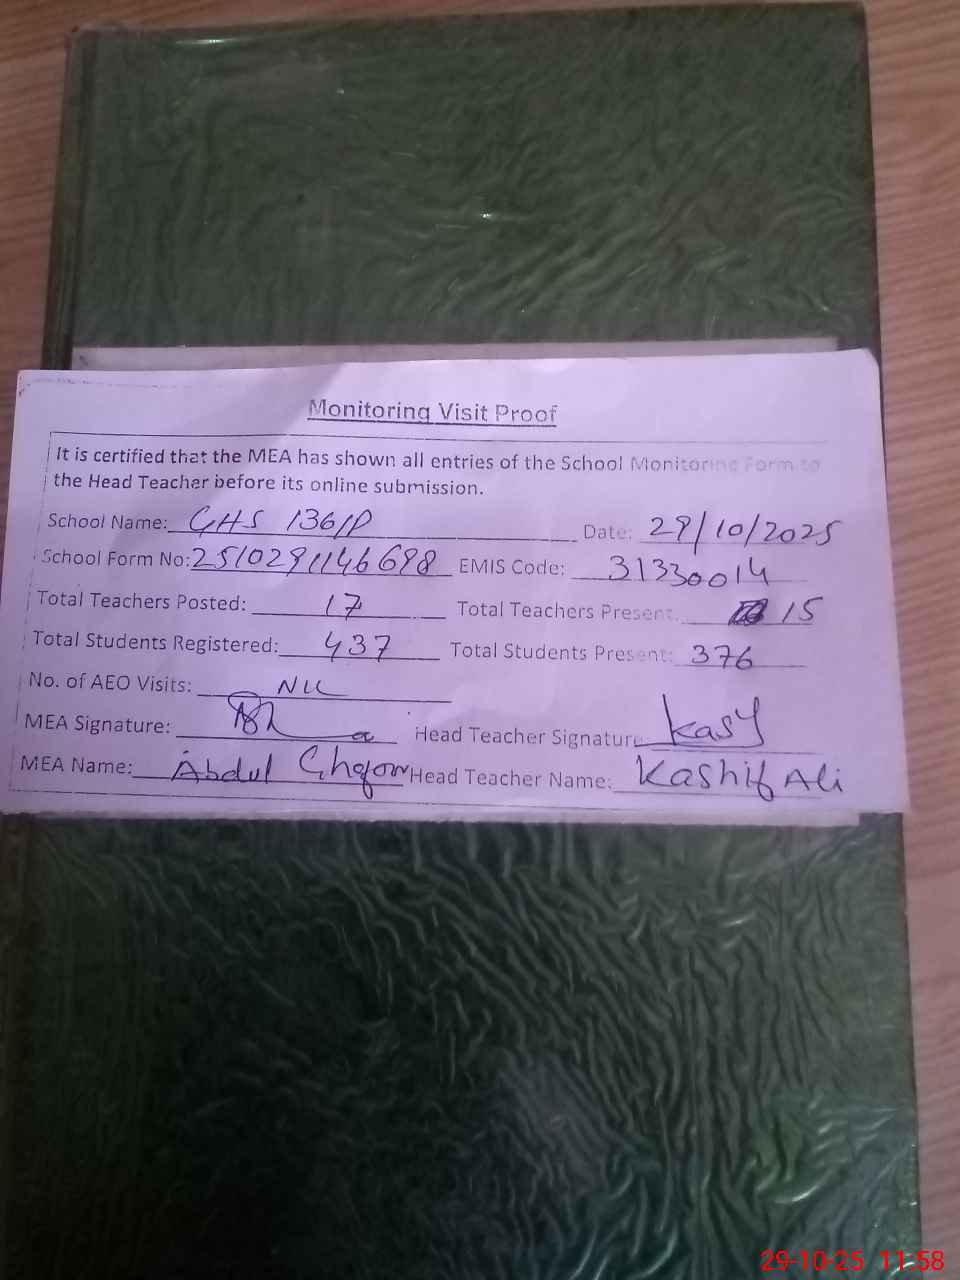 Monitoring Visit Proof
It is certified that the MEA has shown all entries of the School Monitoring Form to
the Head Teacher before its online submission.
School Name: GHS 136/P Date: 29/10/2025
School Form No: 2510291146698 EMIS Code: 31330014
Total Teachers Posted: 17 Total Teachers Present: 15
Total Students Registered: 437 Total Students Present: 376
No. of AEO Visits: NIL
MEA Signature: Head Teacher Signature: Kasy
MEA Name: Abdul Ghafoor Head Teacher Name: Kashif Ali
29-10-25 11:58